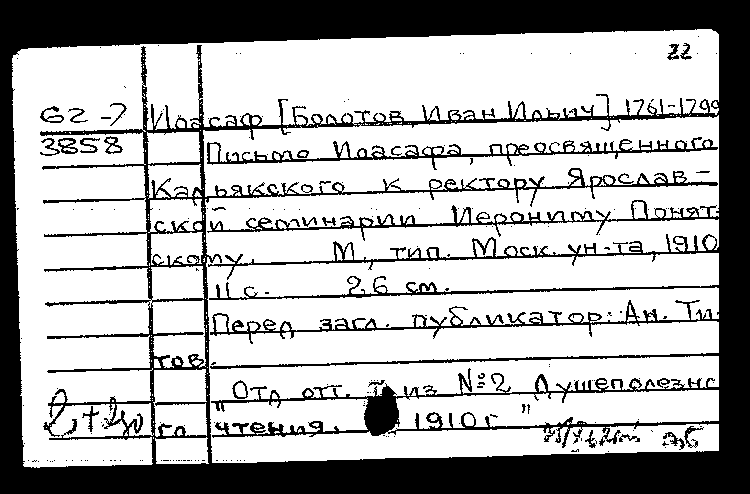 22
62-7 Иоасаф [Болотов, Иван Ильич], 1761-1799
3858 Письмо Иоасафа, преосвященного
Кадьякского к ректору Ярослав-
ской семинарии Иерониму Понят-
скому. М., тип. Моск. ун-та, 1910
11 с. 26 см.
Перед загл. публикатор: Ан. Ти-
тов.
"Отд. отт. из №2 Душеполезно
го чтения. 1910 г"